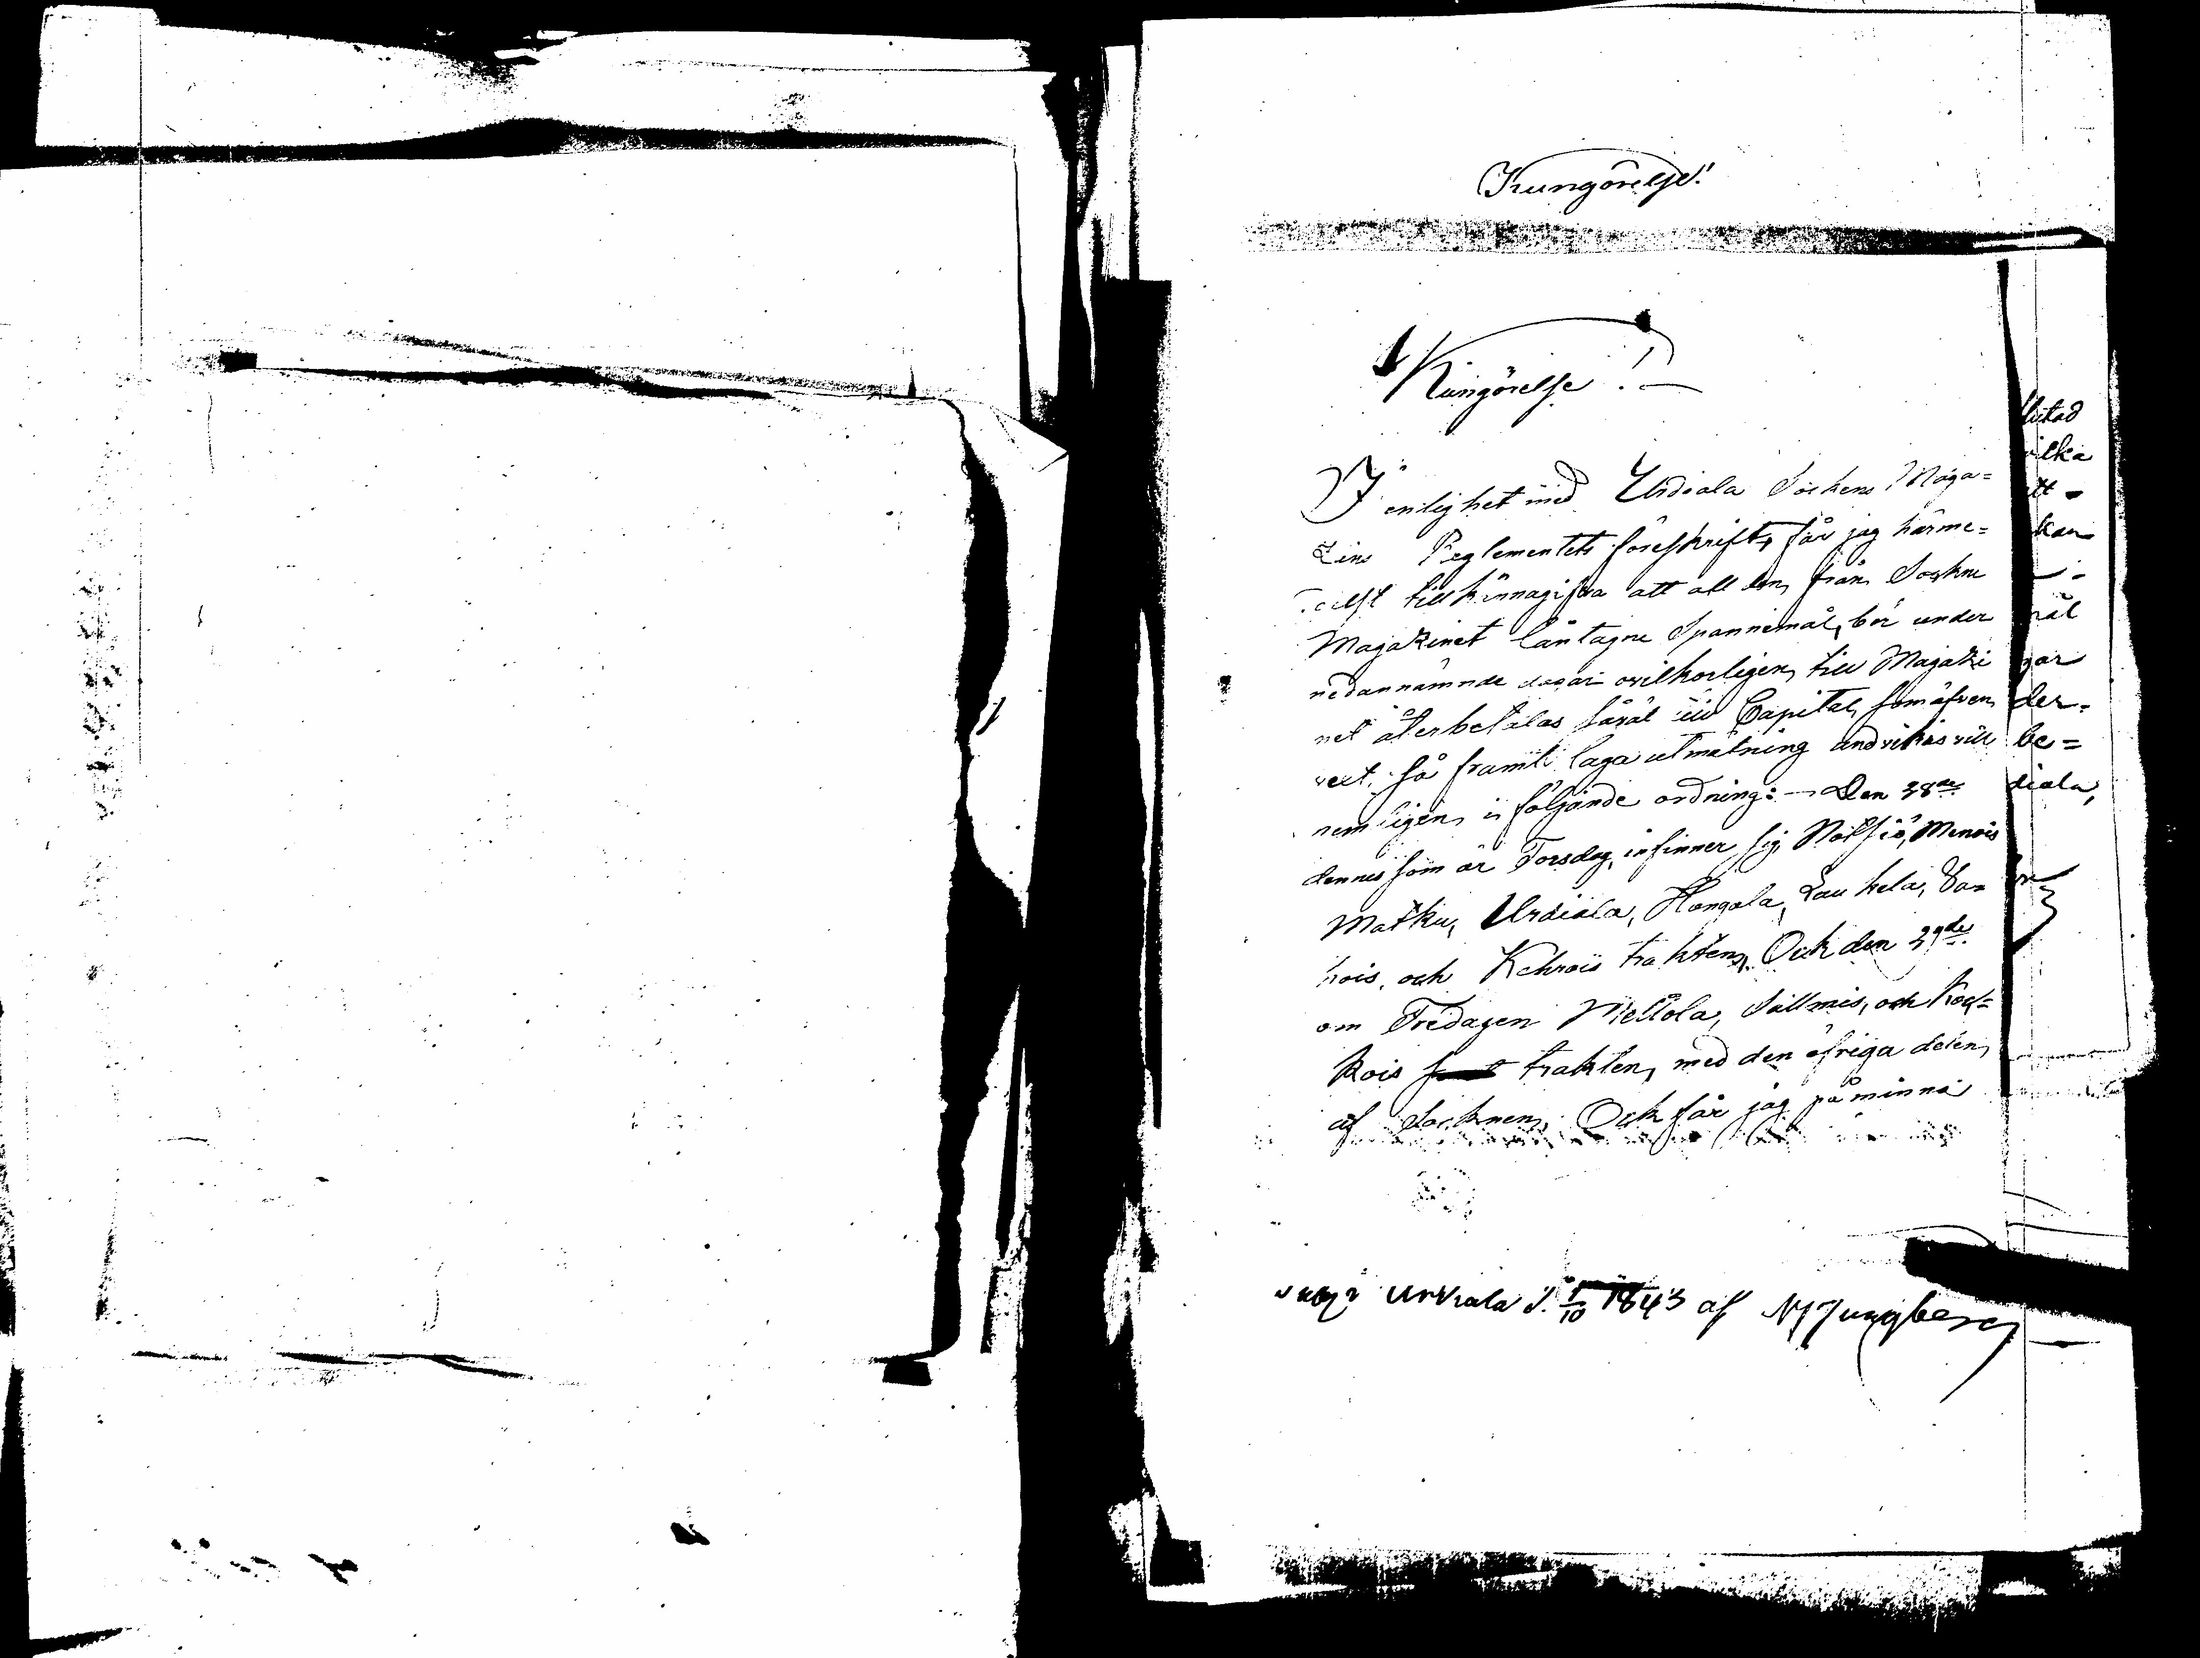 Kungörelse!
Kungörelse!
I enlighet med Urdiala Sockens Maga=
zins Reglementets föreskrift, får jag härme=
delst tillkännagifva att all den från Sockne
Magazinet låntagne Spannemål, bör under
nedannämnde dagar ovilkorligen till Magazi
net återbetalas såväl till Capital, som äfven
så framt laga utmätning undvikas vill
nemligen i följande ordning: — Den 28de
dennes som är Torsdag, infinner sig Notsjö, Menois
Matku, Urdiala, Hongola, Laukela, Va=
hois, och Kehrois trakten. Och den 29de
om Fredagen Viellola, Sallmis, och Kos=
kois trakten, med den öfriga delen
af Socknen. Och får jag påminna
litad
ilka
tt
kan
mål
gar
der=
be=
diala,
Urdiala d. 1/10 1843 af Ljungberg